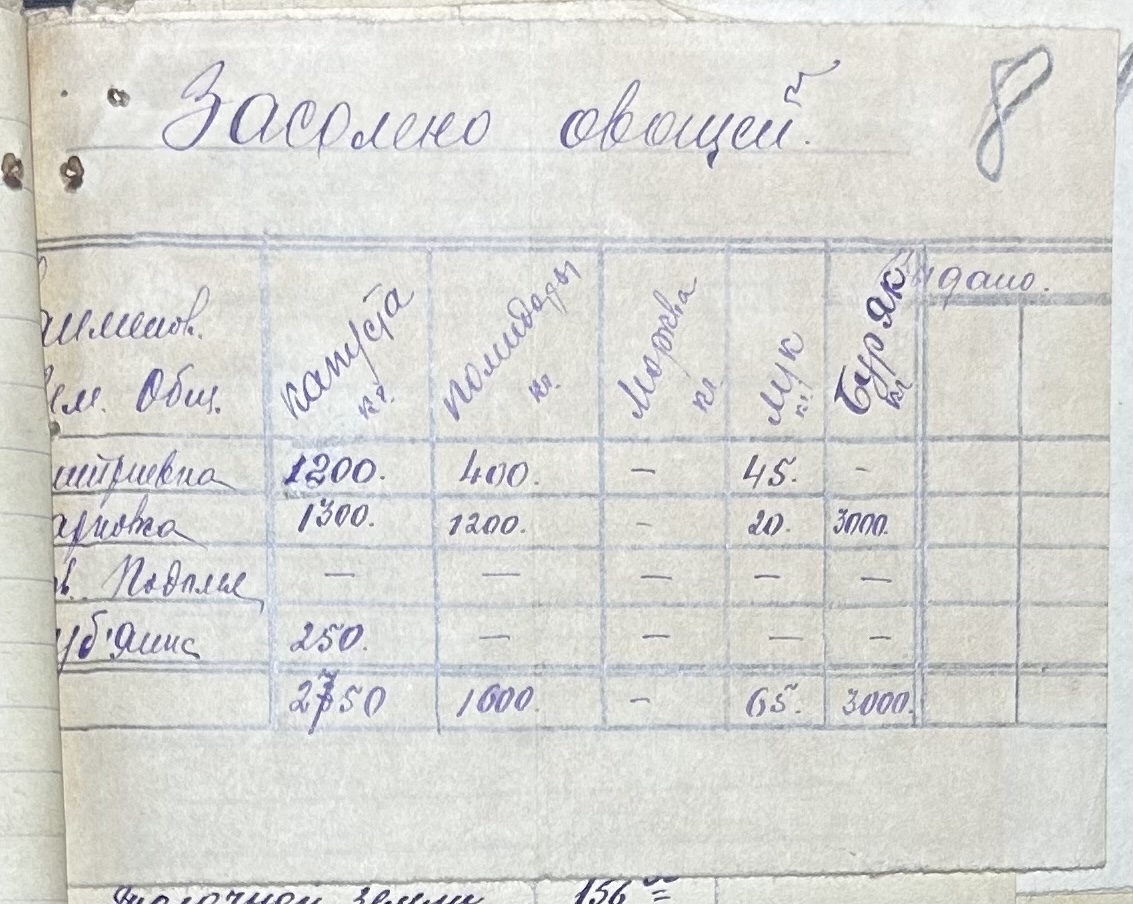 Засолено овощей. 8
аименов. капуста кг. помидоры кг. Морква кг. лук кг. Буряк кг ыдано.
Зем. Общ.
митриевка 1200. 400. - 45. -
арповка 1300. 1200. - 20. 3000.
в. Подолия — — — — —
уб'янка 250. — — — —
2750 1600. - 65. 3000.
земли 156